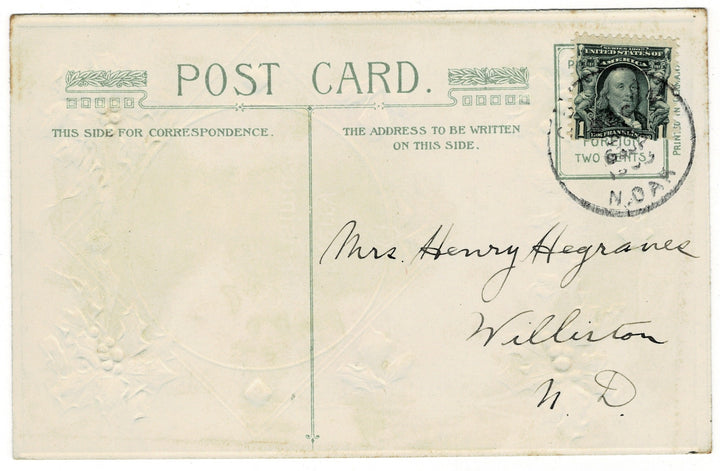 POST CARD.
THIS SIDE FOR CORRESPONDENCE.
THE ADDRESS TO BE WRITTEN
ON THIS SIDE.
SERIES 1902
UNITED STATES OF
AMERICA
1 FRANKLIN 1
FOREIGN
TWO CENTS
PRINTED IN
N. DAK
Mrs. Henry Hegranes
Williston
N. D.